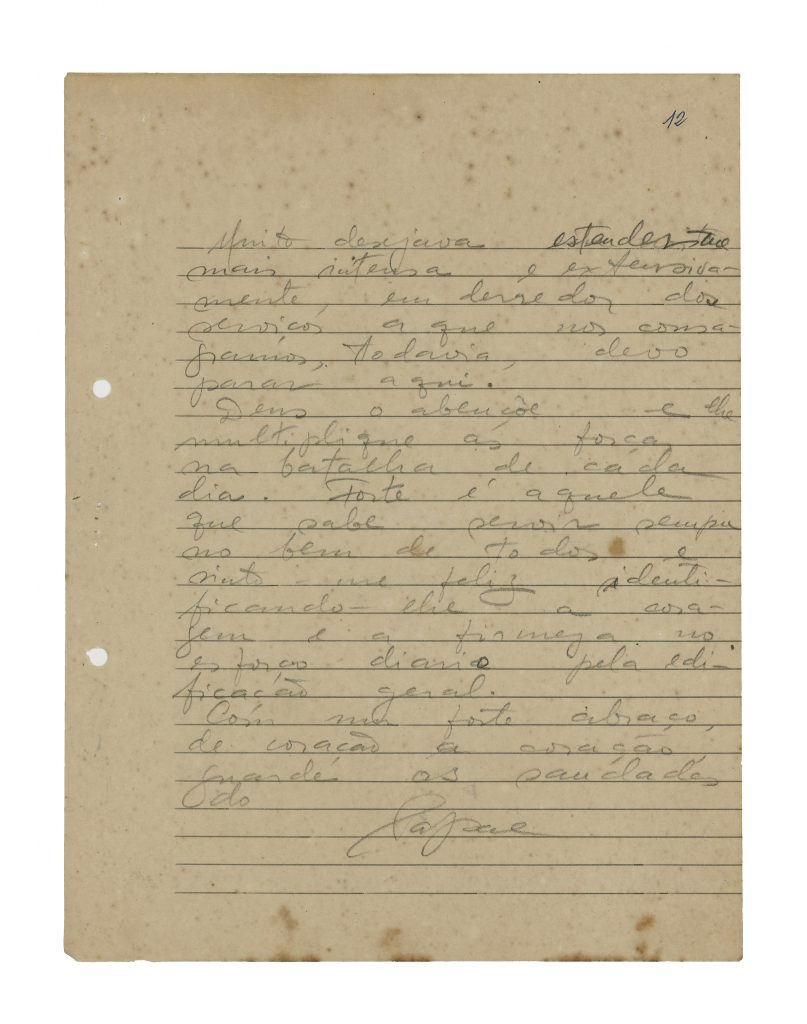 12
Muito desejava estender-me
mais intensa e extensiva-
mente, em derredor dos
serviços a que nos consa-
gramos, todavia, devo
parar aqui.
Deus o abençõe e lhe
multiplique as forças
na batalha de cada
dia. Forte é aquele
que sabe servir sempre
no bem de todos e
sinto-me feliz identi-
ficando-lhe a cora-
gem e a firmeza no
esforço diario pela edi-
ficação geral.
Com um forte abraço,
de coração a coração,
guarde as saudades
do